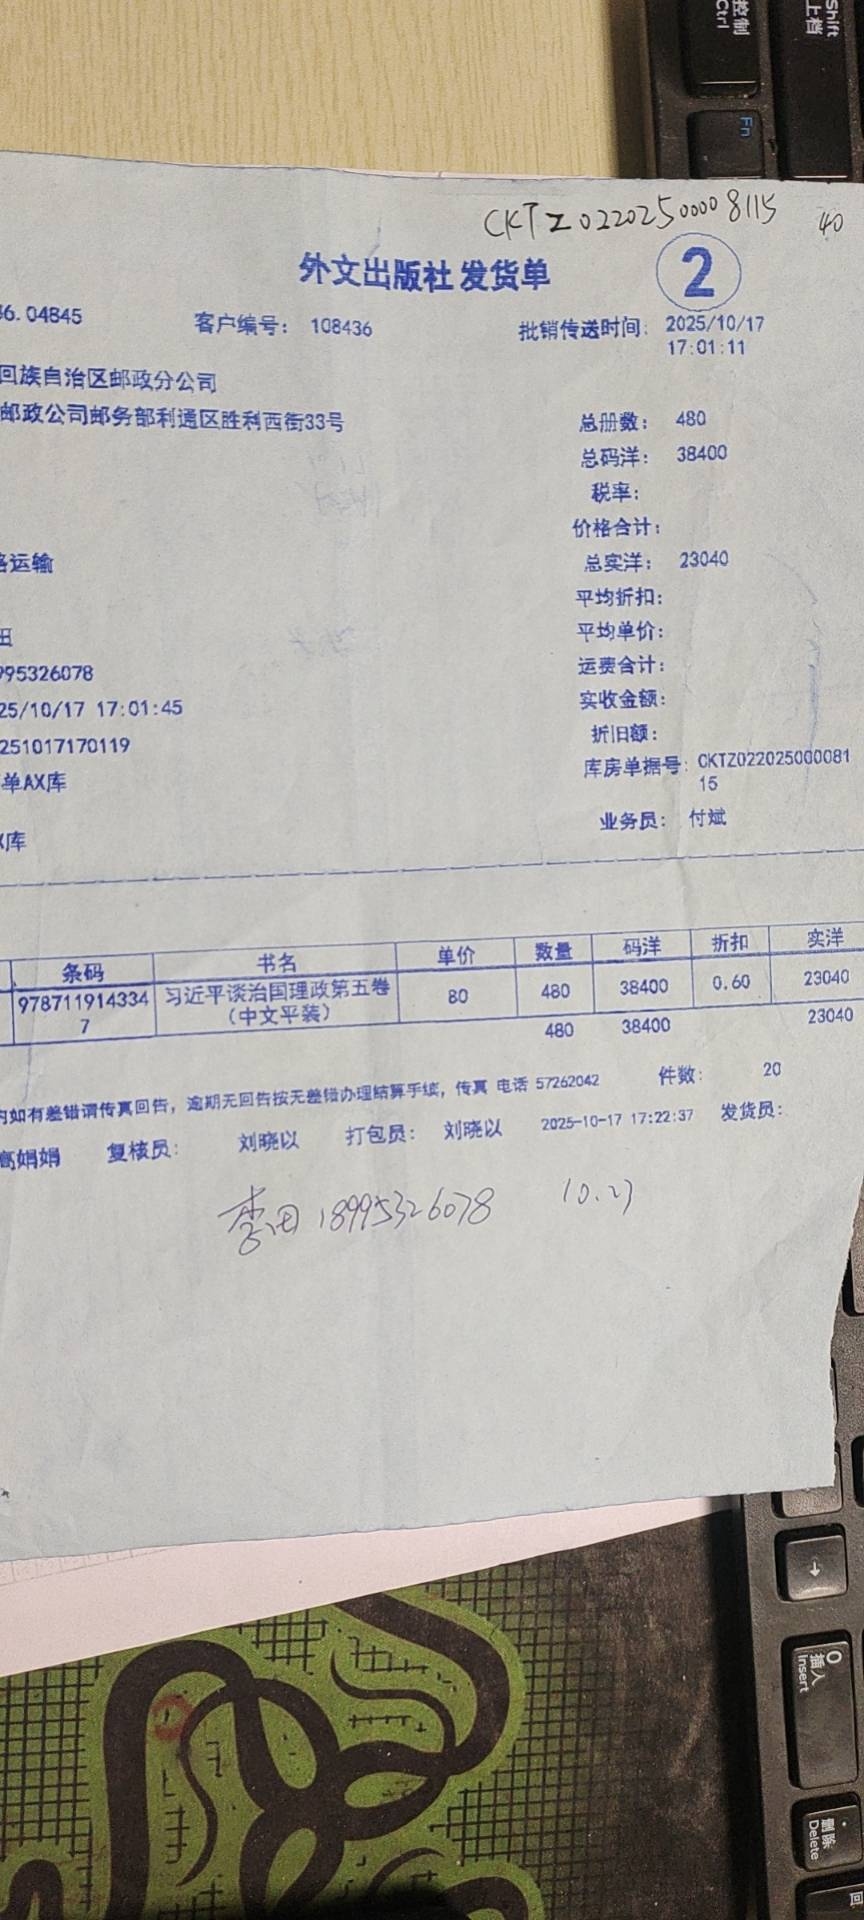 控制
Ctrl
Shift
上档
Fn
CKTZ02202500008115 40
外文出版社发货单 2
36.04845 客户编号： 108436 批销传送时间： 2025/10/17
17:01:11
回族自治区邮政分公司
邮政公司邮务部利通区胜利西街33号
总册数： 480
总码洋： 38400
税率：
价格合计：
路运输 总实洋： 23040
平均折扣：
田 平均单价：
995326078 运费合计：
25/10/17 17:01:45 实收金额：
251017170119 折旧额：
单AX库 库房单据号：CKTZ022025000081
15
X库 业务员： 付斌
条码 书名 单价 数量 码洋 折扣 实洋
978711914334 习近平谈治国理政第五卷 80 480 38400 0.60 23040
7 （中文平装）
480 38400 23040
内如有差错请传真回告，逾期无回告按无差错办理结算手续，传真 电话 57262042 件数： 20
高娟娟 复核员： 刘晓以 打包员： 刘晓以 2025-10-17 17:22:37 发货员：
李田 18995326078 10.23
↓
0
插入
Insert
.
删除
Delete
回